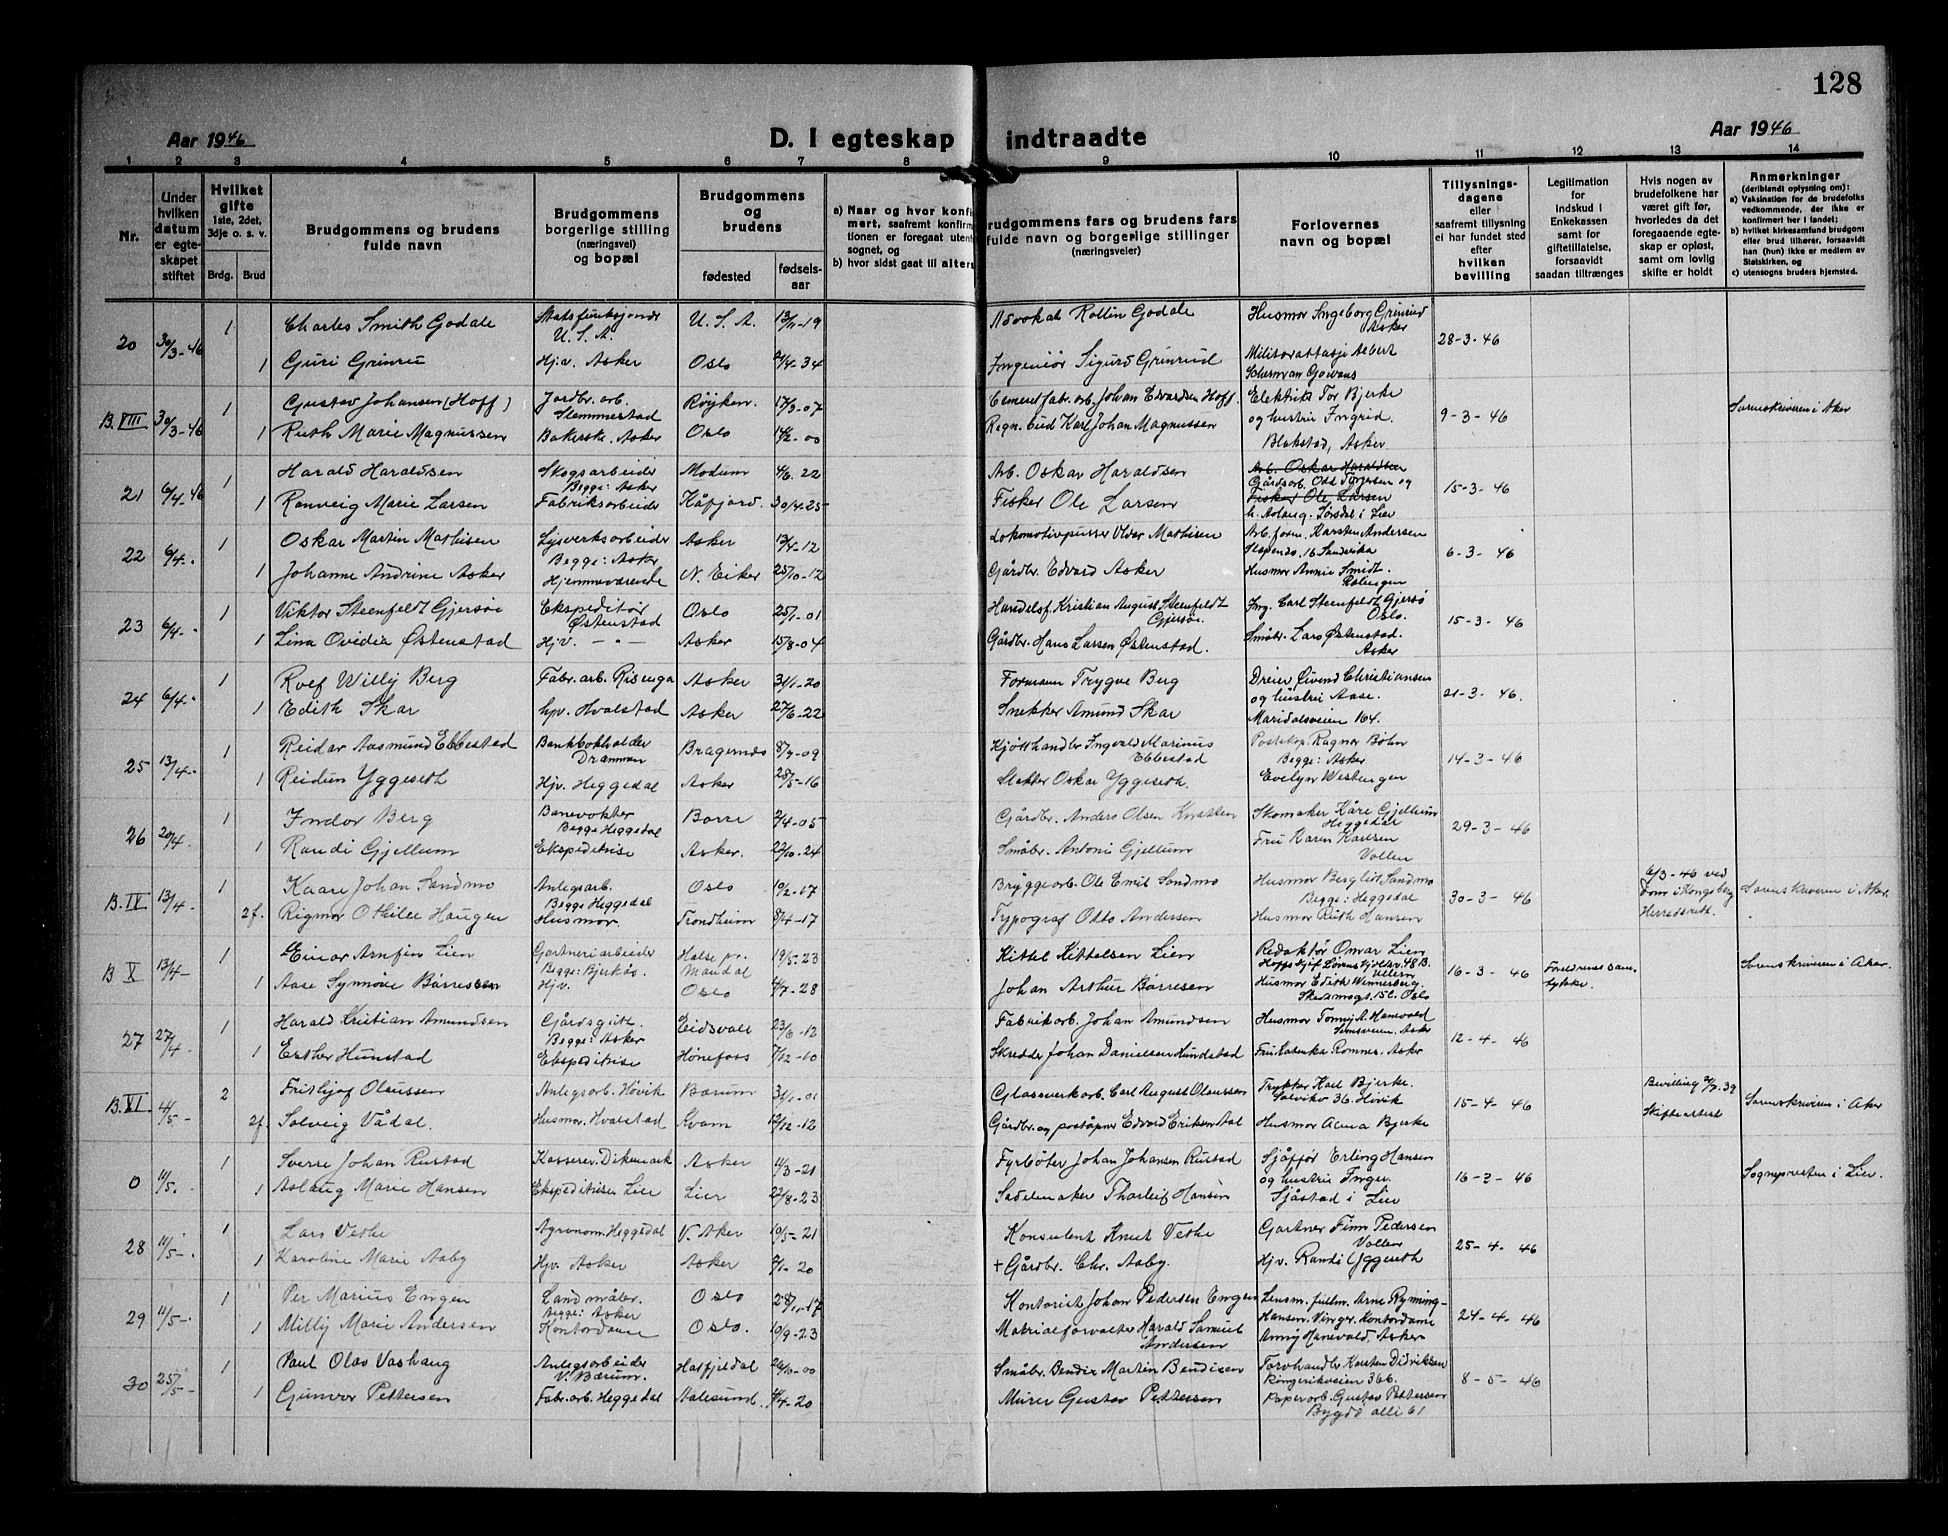 128
Aar 1946
D. I egteskap indtraadte
Aar 1946
1 2 3 4 5 6 7 8 9 10 11 12 13 14
Nr.
Under hvilken datum er egteskapet stiftet
Hvilket gifte 1ste, 2det, 3dje o. s. v.
Brdg. Brud
Brudgommens og brudens fulde navn
Brudgommens borgerlige stilling (næringsvei) og bopæl
Brudgommens og brudens
fødested
fødselsaar
a) Naar og hvor konfirmert, saafremt konfirmationen er foregaat utenfor sognet, og
b) hvor sidst gaat til alters
rudgommens fars og brudens fars fulde navn og borgerlige stillinger (næringsveier)
Forlovernes navn og bopæl
Tillysningsdagene eller saafremt tillysning ei har fundet sted efter hvilken bevilling
Legitimation for indskud i Enkekassen samt for giftetillatelse, forsaavidt saadan tiltrænges
Hvis nogen av brudefolkene har været gift før, hvorledes da det foregaaende egteskap er opløst, samt om lovlig skifte er holdt
Anmerkninger (deriblandt oplysning om):
a) Vaksination for de brudefolks vedkommende, der ikke er konfirmert her i landet;
b) hvilket kirkesamfund brudgom eller brud tilhører, forsaavidt han (hun) ikke er medlem av Statskirken, og
c) utensogns bruders hjemsted.
20 30/3-46 1 Charles Smith Godale U. S. A. U. S. A. 13/11-19 Advokat Rollin Godale Husmor Ingeborg Grinrud Asker 28-3-46
1 Guri Grinrud Hjv. Asker Oslo 2/4-34 Ingeniør Sigurd Grinrud Militærattasje
B.VIII 30/3-46 1 Gustav Johansen (Hoff) Jordbr. arb. Slemmestad Røyken 17/3-07 Cementfabr. arb. Johan Edvardsen Hoff. Elektrik Tor Bjerke 9-3-46 Sorenskriveren i Aker
1 Ruth Marie Magnussen Asker Oslo 14/2-00 Regn. bud Karl Johan Magnussen og hustru Ingrid. Blakstad, Asker
21 6/4-46 1 Harald Haraldsen Skogsarbeider Begge: Asker Modum 4/6.22 Arb. Oskar Haraldsen Arb. Oskar Haraldsen Gårdsarb. Odd Torjersen og 15-3-46
1 Ranveig Marie Larsen Fabriksarbeider Kåfjord 30/4.25 Fisker Ole Larsen Fisker Ole Larsen
22 6/4- 1 Oskar Martin Mathisen Lysverksarbeider Begge: Asker Asker 13/4-12 Lokomotivpusser Mathisen Arb. form. Karsten Andersen Slependv. 16 Sandvika 6-3-46
1 Johanne Andrine Asker Hjemmeværende N. Eiker 25/10-12 Gårdbr. Edvard Asker Husmor Annie Smidt.
23 6/4- 1 Viktor Steenfeldt Gjersøe Ekspeditør Østenstad Oslo 25/1-01 Handelsf. Kristian August Steenfeldt Gjersøe Ing. Carl Steenfeldt Gjersø Oslo. 15-3-46
1 Lina Ovidia Østenstad Hjv. - " - Asker 15/8-04 Gårdbr. Hans Larsen Østenstad. Småbr. Lars Østenstad. Asker
24 6/4- 1 Rolf Willy Berg Fabr. arb. Risenga Asker 31/1-20 Formann Trygve Berg Dreier Øivind Christiansen 21-3-46.
1 Edith Skar hjv. Hvalstad Asker 27/6-22 Snekker Amund Skar og hustru Aase. Maridalsveien 164.
25 13/4- 1 Reidar Aasmund Ebbestad Bankbokholder Drammen Bragernes 8/7-09 Kjøtthandler Ingvald Marinus Ebbestad Posteksp. Ragnar Bøhn Begge: Asker 14-3-46
1 Reidun Yggeseth Hjv. Heggedal Asker 28/5-16 Slakter Oskar Yggeseth. Evelyn Westengen
26 20/4- 1 Indor Berg Banevokter Begge Heggedal Borre 2/4-05 Gårdbr. Anders Olsen Knatten Skomaker Kåre Gjellum Heggedal 29-3-46
1 Randi Gjellum Ekspeditrise Asker. 22/10-24 Småbr. Antoni Gjellum Fru Karen Karlsen Vollen
B.IV 13/4- 1 Kaare Johan Sandmo Anlegsarb. Begge Heggedal Oslo 19/2-17 Bryggearb. Ole Emil Sandmo Husmor Bergliot Sandmo Begge: Heggedal 30-3-46 6/3-46 ved Dom i Kongsberg Herredsrett. Sorenskriveren i Aker.
2f. Rigmor Othilie Haugen Husmor Trondheim 8/4-17 Typograf Otto Andersen Husmor Ruth Hansen
B V 13/4- 1 Einar Arnfin Lien Gartneriarbeider Begge: Bjerkås. Halse pr. Mandal 19/5-23 Kittel Kittelsen Lien Redaktør Omar Lien 16-3-46 Foreldrenes samtykke Sorenskriveren i Aker.
1 Aase Synnøve Børresen Hjv. Oslo 4/7-28 Johan Arthur Børresen Husmor Edith Winnerberg. Oslo
27 27/4 1 Harald Kristian Amundsen Gårdsgutt. Begge: Asker Eidsvoll 23/6-12 Fabrikarb. Johan Amundsen Husmor Tonny A. Hanevold Asker 12-4-46
1 Esther Hunstad Ekspeditrise Hønefoss 7/12-10 Skredder Johan Danielsen Hundstad Fru Romnes. Asker
B.VI 4/5- 2 Frithjof Olaussen Anlegsarb. Høvik Bærum 31/1-01 Glassverkarb. Carl August Olaussen Trykker Karl Bjerke. Solvikv 36. Høvik 15-4-46 Bevilling 2/7.39 Skifteattest Sorenskriveren i Aker
2f. Solveig Vådal. Husmor. Hvalstad Kvam 12/12-12 Gårdbr. og poståpner Edvard Eriksen Aal Husmor Alma Bjerke
0 11/5. 1 Sverre Johan Rustad Kasserer. Dikemark Asker 11/3-21 Fyrbøter Johan Johansen Rustad Sjåffør Erling Hansen 16-3-46 Sognepresten i Lier.
1 Aslaug Marie Hansen Ekspeditrise Lier Lier 22/8-23 Sadelmaker Thorleif Hansen og hustru Inger. Sjåstad i Lier
28 11/5- 1 Lars Vethe Agronom. Heggedal V. Aker 10/5-21 Konsulent Knut Vethe Gartner Finn Pedersen Vollen 25-4-46
1 Karoline Marie Aaby Hjv. Asker Asker 2/1-20 + Gårdbr. Chr. Aaby. Hjv. Randi Yggeseth
29 11/5- 1 Per Marius Engen Landmåler. Begge: Asker Oslo 28/1-17 Kontorist Johan Pedersen Engen Lensm. fullm. Arne Ryming- 24-4-46
1 Milly Marie Andersen Kontordame Oslo. 10/9-23 Matrialforvalter Harald Samuel Andersen Hansen. Vinger. Kontordame Anny Hanevold, Asker
30 25/5- 1 Paul Olav Vashaug Anlegsarbeider V. Bærum. Hatfjeldal 26/3-00 Småbr. Bendix Martin Bendixen Torvhandler Karsten Didriksen Ringeriksveien 366. 8-5-46
1 Gunvor Pettersen Fabr. arb. Heggedal Aalesund. 4/4-20 Murer Gustav Pettersen Papirarb. Gustav Pettersen Bygdø alle 61